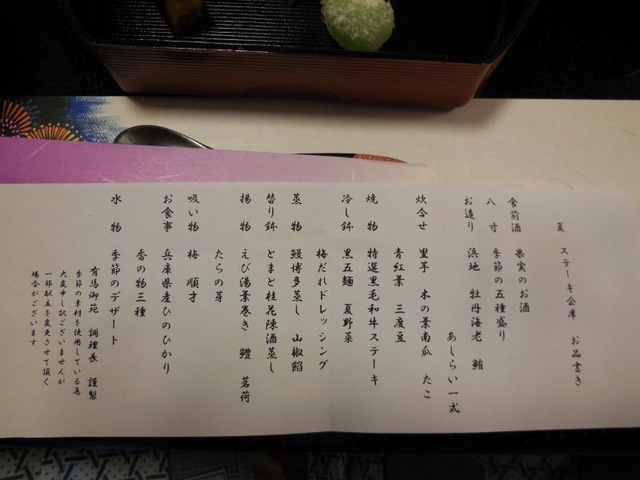 夏 ステーキ会席 お品書き
食前酒 果実のお酒
八寸 季節の五種盛り
お造り 浜地 牡丹海老 鮪
あしらい一式
炊合せ 里芋 木の葉南瓜 たこ
青紅葉 三度豆
焼物 特選黒毛和牛ステーキ
冷し鉢 黒五麺 夏野菜
梅だれドレッシング
蒸物 鰻博多蒸し 山椒餡
替り鉢 とまと桂花陳酒蒸し
揚物 えび湯葉巻き 鱧 茗荷
たらの芽
吸い物 梅 順才
お食事 兵庫県産ひのひかり
香の物三種
水物 季節のデザート
有馬御苑 調理長 謹製
季節の素材を使用している為
大変申し訳ございませんが
一部献立を変更させて頂く
場合がございます